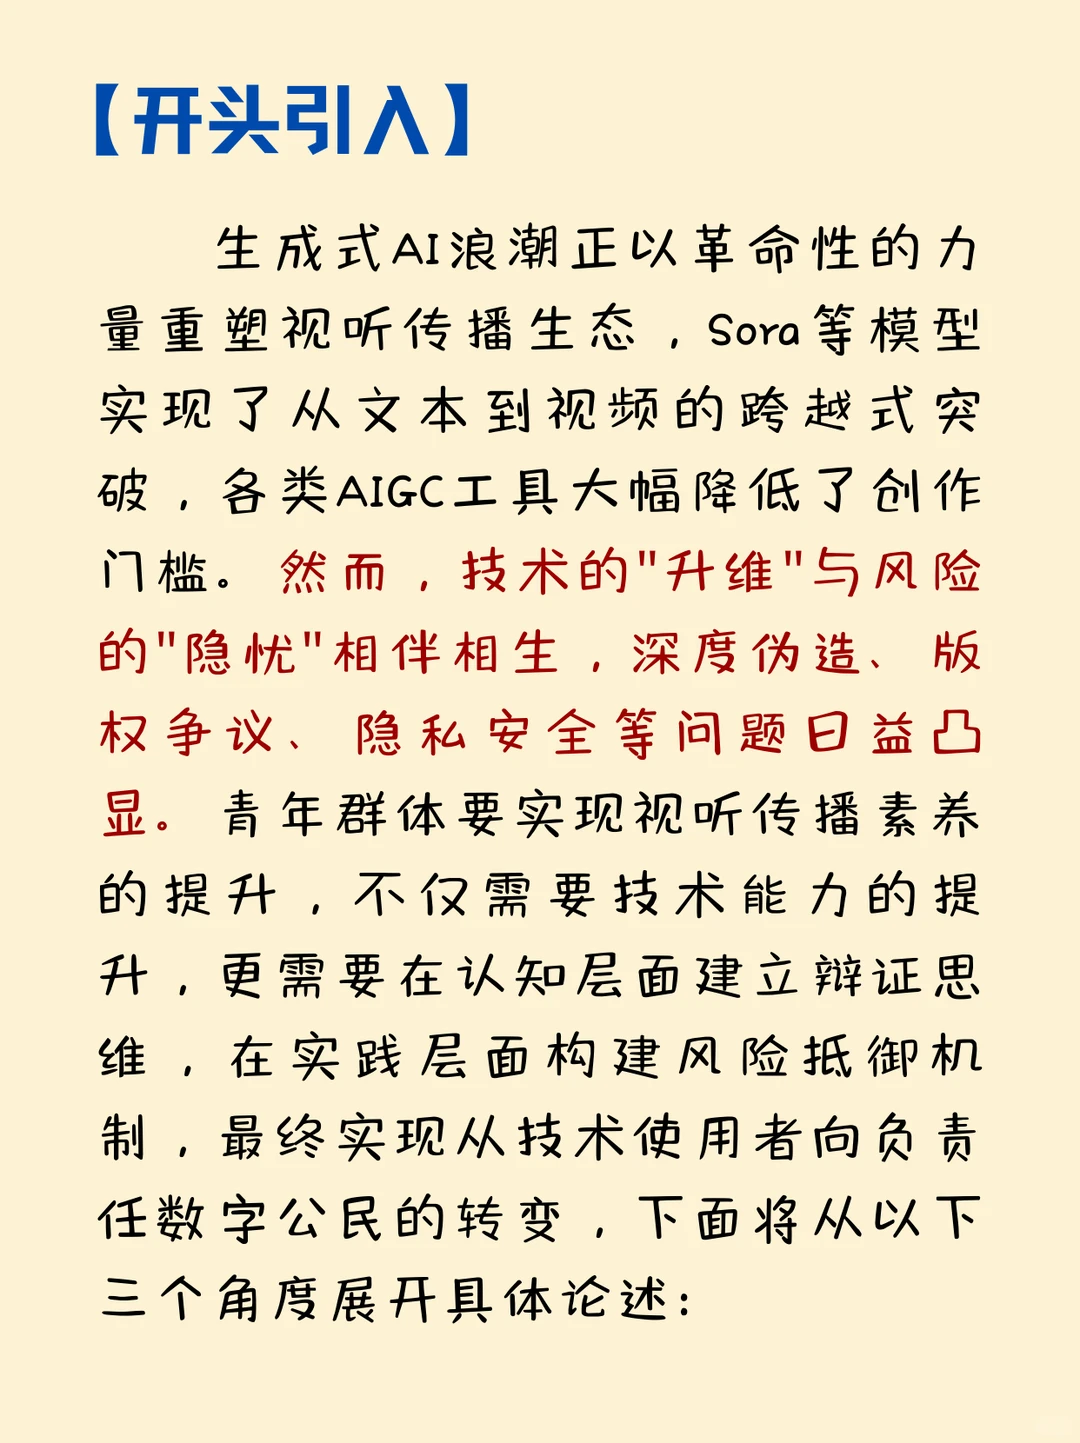 【开头引入】
生成式AI浪潮正以革命性的力
量重塑视听传播生态，Sora等模型
实现了从文本到视频的跨越式突
破，各类AIGC工具大幅降低了创作
门槛。然而，技术的"升维"与风险
的"隐忧"相伴相生，深度伪造、版
权争议、隐私安全等问题日益凸
显。青年群体要实现视听传播素养
的提升，不仅需要技术能力的提
升，更需要在认知层面建立辩证思
维，在实践层面构建风险抵御机
制，最终实现从技术使用者向负责
任数字公民的转变，下面将从以下
三个角度展开具体论述: